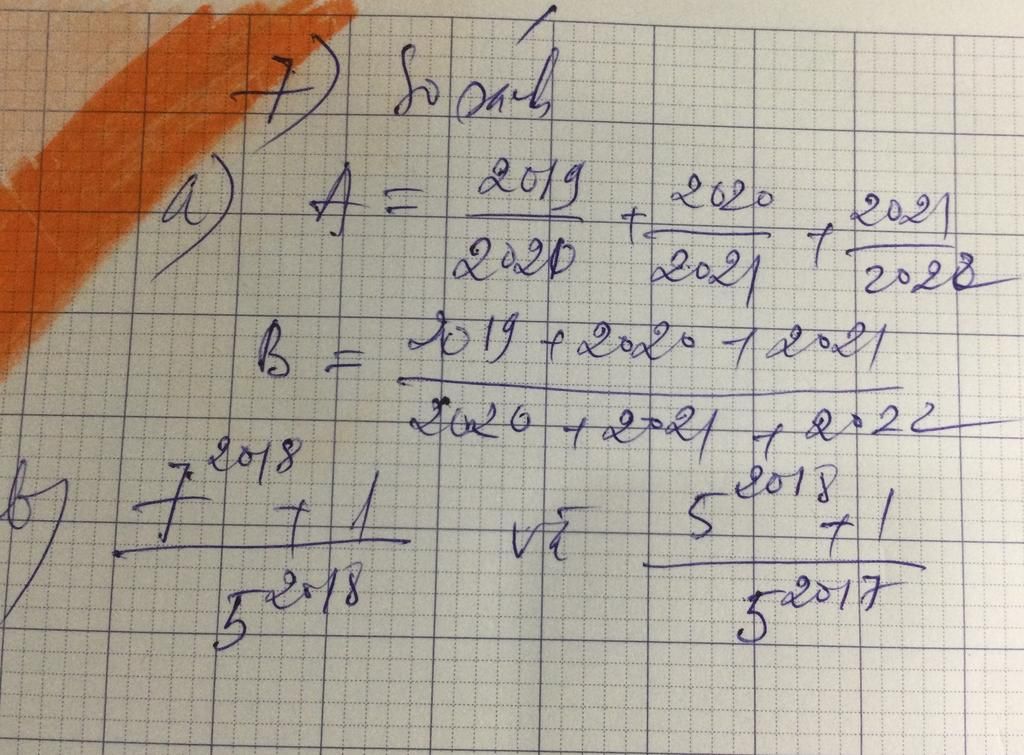 7) So sánh
a) A = 2019/2020 + 2020/2021 + 2021/2022
B = (2019 + 2020 + 2021)/(2020 + 2021 + 2022)
b) (7^2018 + 1)/5^2018 và (5^2018 + 1)/5^2017